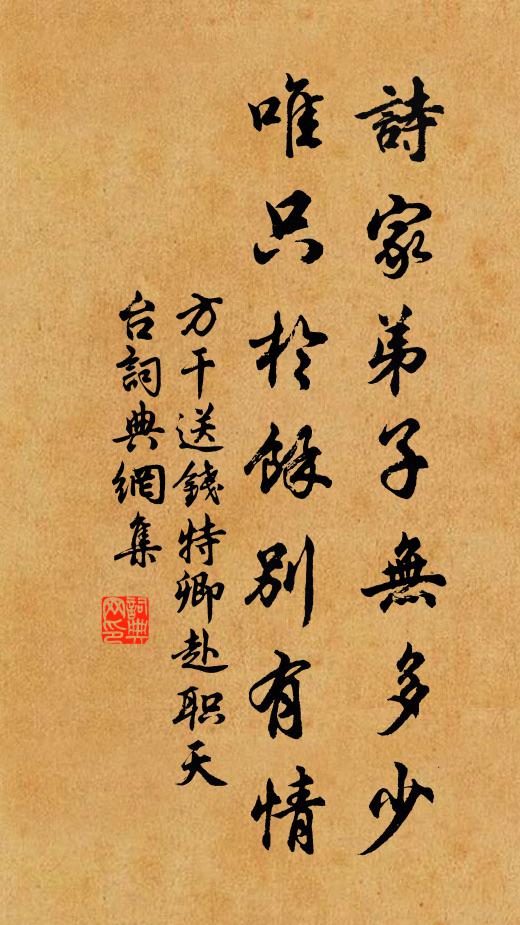 詩家弟子無多少
唯只於餘別有情
方干送錢特卿赴职天
台詞典網集
詞典
网印